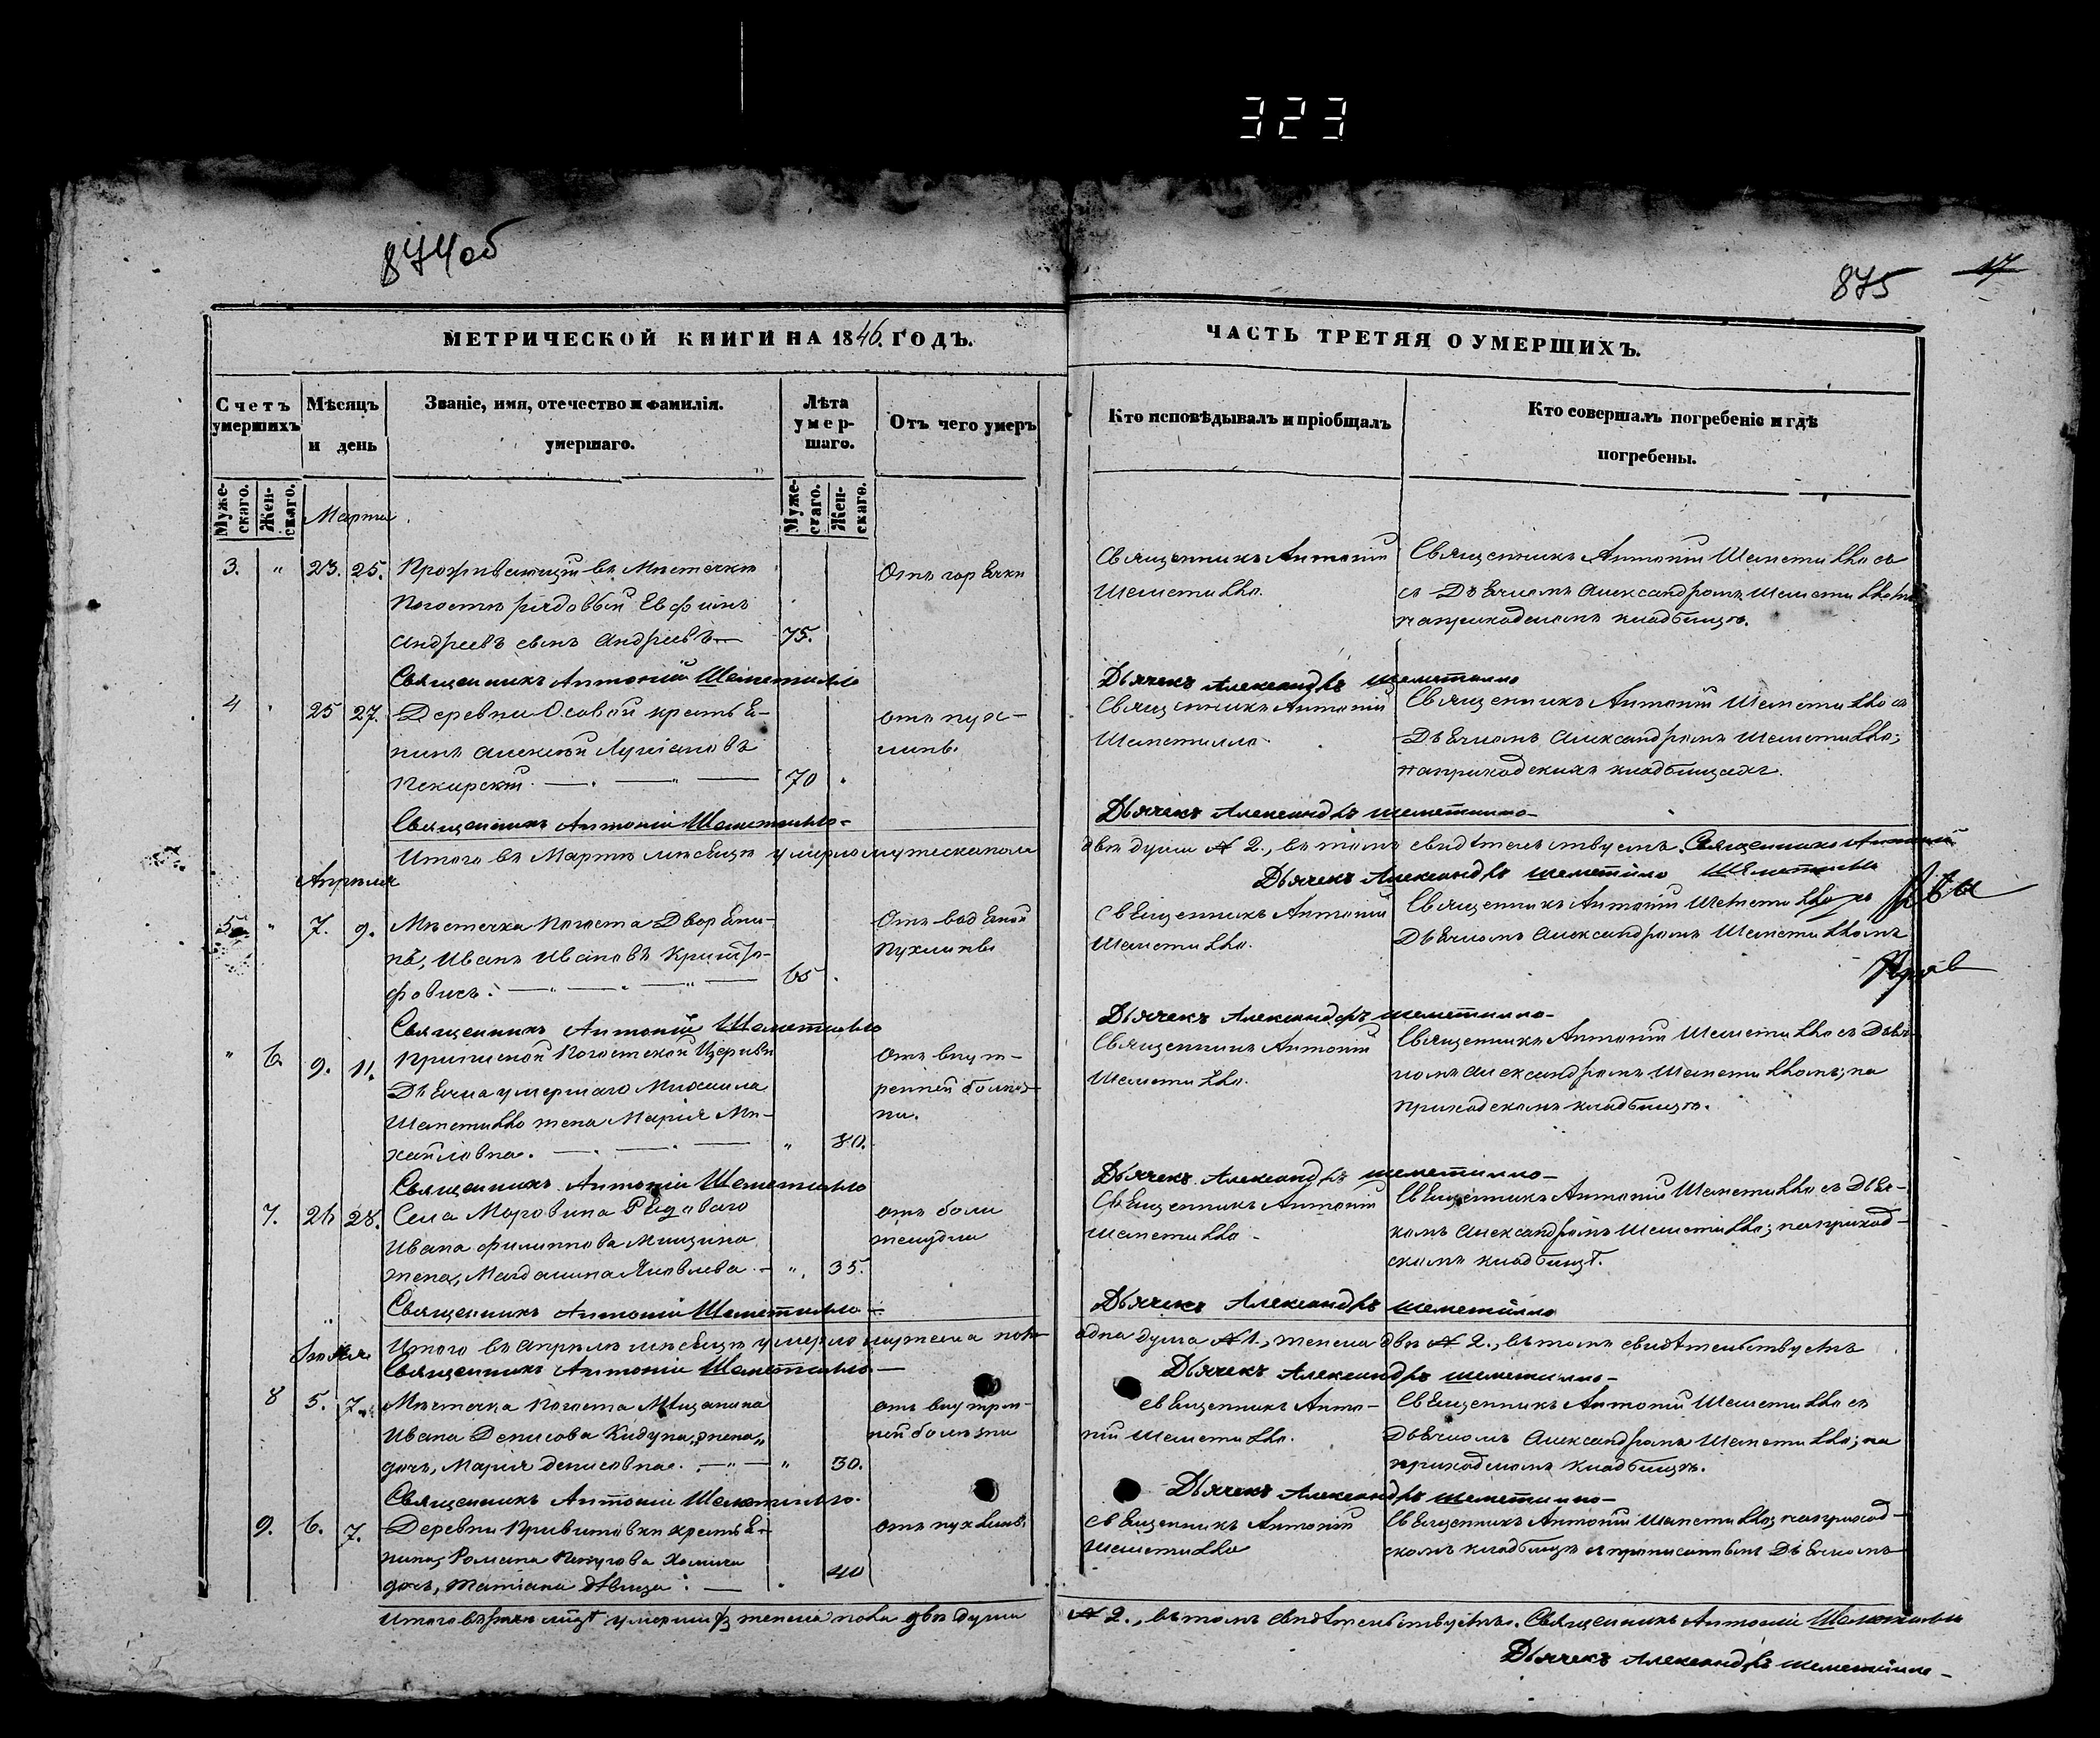 323
874об
875
17
МЕТРИЧЕСКОЙ КНИГИ НА 1846. ГОДЪ.
ЧАСТЬ ТРЕТЯЯ О УМЕРШИХЪ.
Счетъ умершихъ
Мѣсяцъ и день
Званіе, имя, отечество и фамилія. умершаго.
Лѣта умер-шаго.
Отъ чего умеръ
Кто исповѣдывалъ и пріобщалъ
Кто совершалъ погребеніе и гдѣ погребены.
Муже-скаго.
Жен-скаго.
Муже-скаго.
Жен-скаго.
Марта
3. " 23. 25. Проживающій въ Мѣстечкѣ
Погостѣ рядовый Евфимъ
Андреевъ сынъ Андреевъ 75.
Отъ горячки
Священникъ Антоній
Шеметилло.
Священникъ Антоній Шеметилло съ
Дьячкомъ Александромъ Шеметилло
на приходскомъ кладбищѣ.
Священникъ Антоній Шеметилло
Дьячекъ Александръ Шеметилло
4 25 27. Деревни Осовой крестья-
нинъ Алексѣй
Пекарскій 70
отъ
Священникъ Антоній
Шеметилло.
Священникъ Антоній Шеметилло съ
Дьячкомъ Александромъ Шеметилло;
на приходскихъ кладбищахъ.
Священникъ Антоній Шеметилло
Дьячекъ Александръ Шеметилло
Итого въ Мартѣ мѣсяцѣ умерло мужеска пола
двѣ души № 2., въ томъ свидѣтельствуемъ. Священникъ Антоній
Шеметилло
Дьячекъ Александръ Шеметилло
Апрѣля
5 " 7. 9. Мѣстечка Погоста Дворяни-
нъ, Иванъ Ивановъ
65
Отъ водяной
пухлины
Священникъ Антоній
Шеметилло.
Священникъ Антоній Шеметилло съ
Дьячкомъ Александромъ Шеметилломъ
Священникъ Антоній Шеметилло
Дьячекъ Александръ Шеметилло
" 6. 9. 11. Погостской Церкви
Дьячка умершаго Михаила
Шеметилло жена Марія Ми-
хайловна. " 80.
Отъ внут-
ренней болѣз-
ни.
Священникъ Антоній
Шеметилло.
Священникъ Антоній Шеметилло съ Дьяч-
комъ Александромъ Шеметилломъ; на
приходскомъ кладбищѣ.
Священникъ Антоній Шеметилло
Дьячекъ Александръ Шеметилло
7. 26 28. Села Моровина Рядоваго
Ивана Филиппова
жена, Магдалина Яковлева. " 35.
отъ боли
желудка
Священникъ Антоній
Шеметилло
Священникъ Антоній Шеметилло съ Дьяч-
комъ Александромъ Шеметилло; на приход-
скомъ кладбищѣ.
Священникъ Антоній Шеметилло
Дьячекъ Александръ Шеметилло
Итого въ Апрѣлѣ мѣсяцѣ умерло мужеска пола
одна душа № 1., женска двѣ № 2., въ томъ свидѣтельствуемъ
Священникъ Антоній Шеметилло
Дьячекъ Александръ Шеметилло
8 5. 7. Мѣстечка Погоста Мѣщанина
Ивана Денисова
дочь, Марія Денисовна. " 30.
отъ внутрен-
ней болѣзни
Священникъ Анто-
ній Шеметилло.
Священникъ Антоній Шеметилло съ
Дьячкомъ Александромъ Шеметилло; на
приходскомъ кладбищѣ.
Священникъ Антоній Шеметилло.
Дьячекъ Александръ Шеметилло
9. 6. 7. Деревни крестья-
нина, Романа
дочь, Татіана дѣвица. 40
отъ пухлины
Священникъ Антоній
Шеметилло
Священникъ Антоній Шеметилло; на приход-
скомъ кладбищѣ Дьячкомъ
Итого въ женска пола двѣ души
№ 2., въ томъ свидѣтельствуемъ. Священникъ Антоній Шеметилло
Дьячекъ Александръ Шеметилло